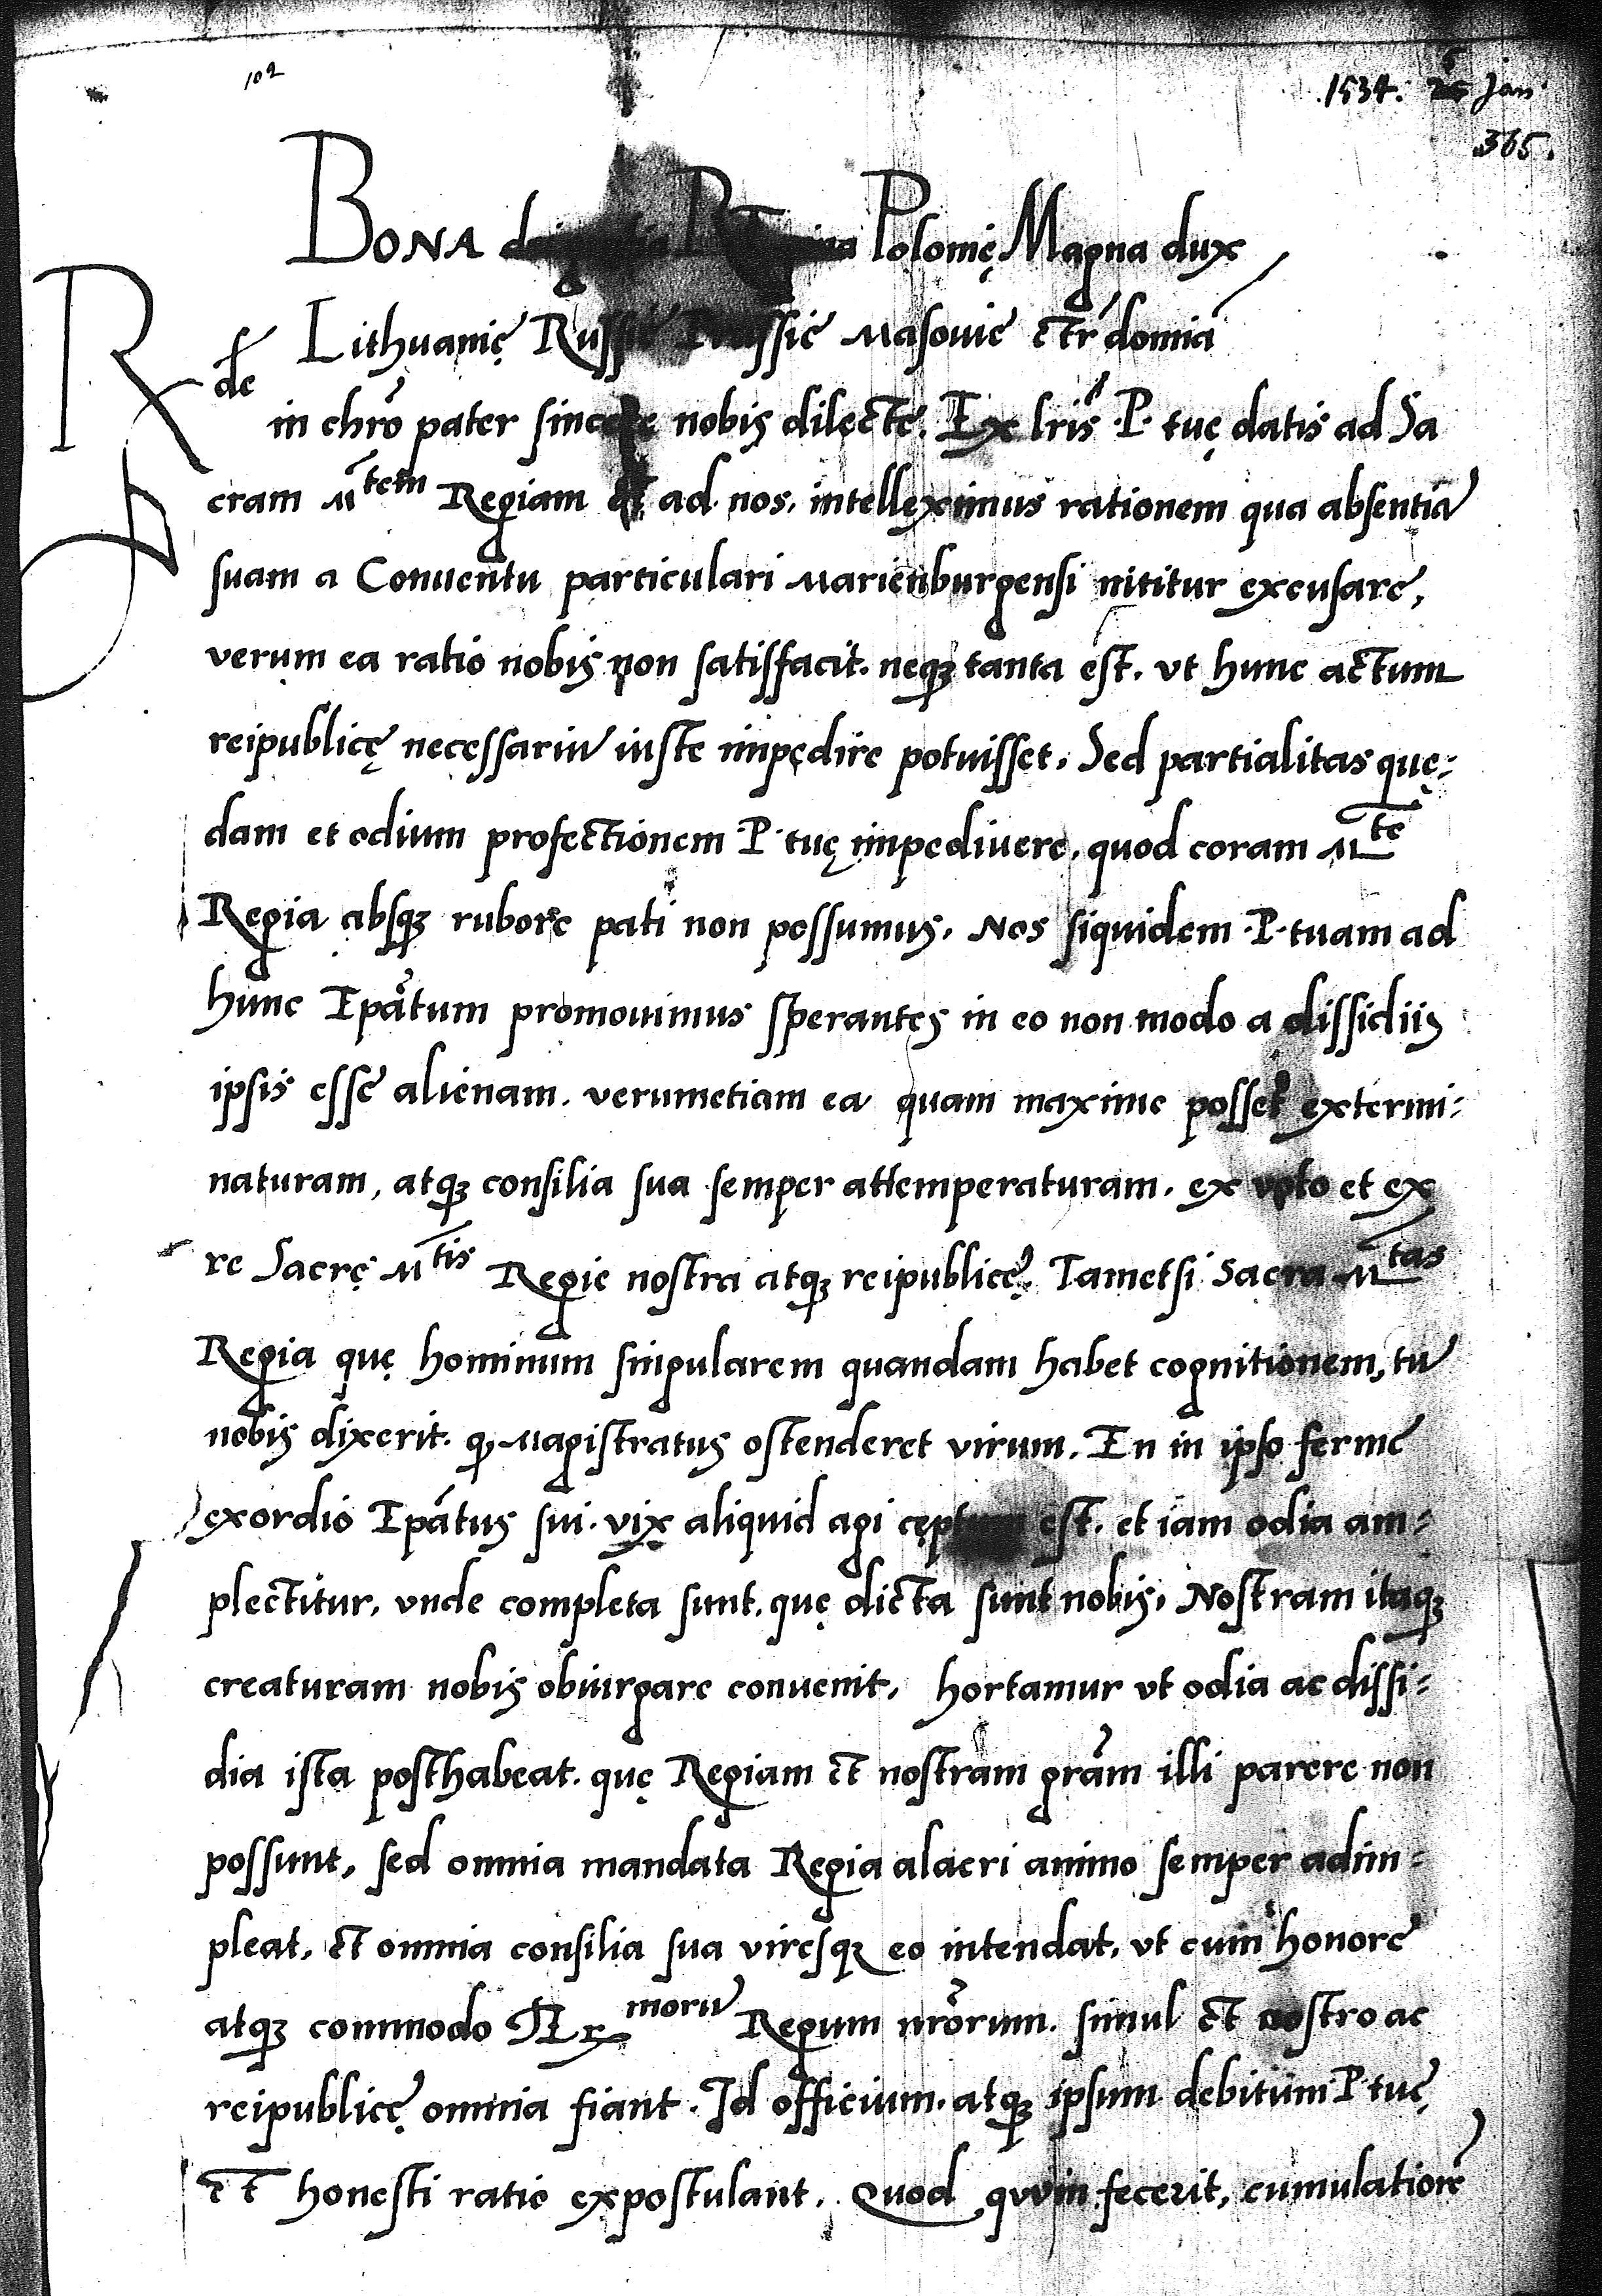 102
1534. Jan
365.
BONA dei gratia Regina Polonię Magna dux
Lithuanię Russie Prussie Masouie etc̃ domiã
Rde in chrõ pater sincere nobis dilecte. Ex lrĩs P. tuę datis ad Sa
cram Mtem Regiam et ad nos. intelleximus rationem qua absentiã
suam a Conuentu particulari Marienburgensi nititur excusare,
verum ea ratio nobis non satisfacit. neqꝫ tanta est. vt hunc actum
reipublicę necessariũ iuste impędire potuisset. Sed partialitas quę-
dam et odium profectionem P. tuę impediuere. quod coram Mte
Regia absqꝫ rubore pati non possumus. Nos siquidem .P. tuam ad
hunc Epãtum promouimus sperantes in eo non modo a dissidiis
ipsis esse alienam. verumetiam ea quam maxime posset extermi-
naturam, atqꝫ consilia sua semper attemperaturam. ex voto et ex
re Sacrę Mtis Regie nostra atqꝫ reipublicę. Tametsi Sacra Mtas
Regia quę hominum singularem quandam habet cognitionem, tũ
nobis dixerit. ꝙ Magistratus ostenderet virum. En in ipso ferme
exordio Epãtus sui. vix aliquid agi cęptum est. et iam odia am-
plectitur. vnde completa sunt. quę dicta sunt nobis. Nostram itaqꝫ
creaturam nobis obiurgare conuenit. hortamur vt odia ac dissi-
dia ista posthabeat. quę Regiam et nostram grãm illi parere non
possunt, sed omnia mandata Regia alacri animo semper adim-
pleat. et omnia consilia sua viresqꝫ eo intendat. vt cum honore
atqꝫ commodo morũ Regum nrõrum. simul et nostro ac
reipublicę omnia fiant. Id officium. atqꝫ ipsum debitum P. tuę
et honesti ratio expostulant. Quod quum fecerit, cumulatiorẽ